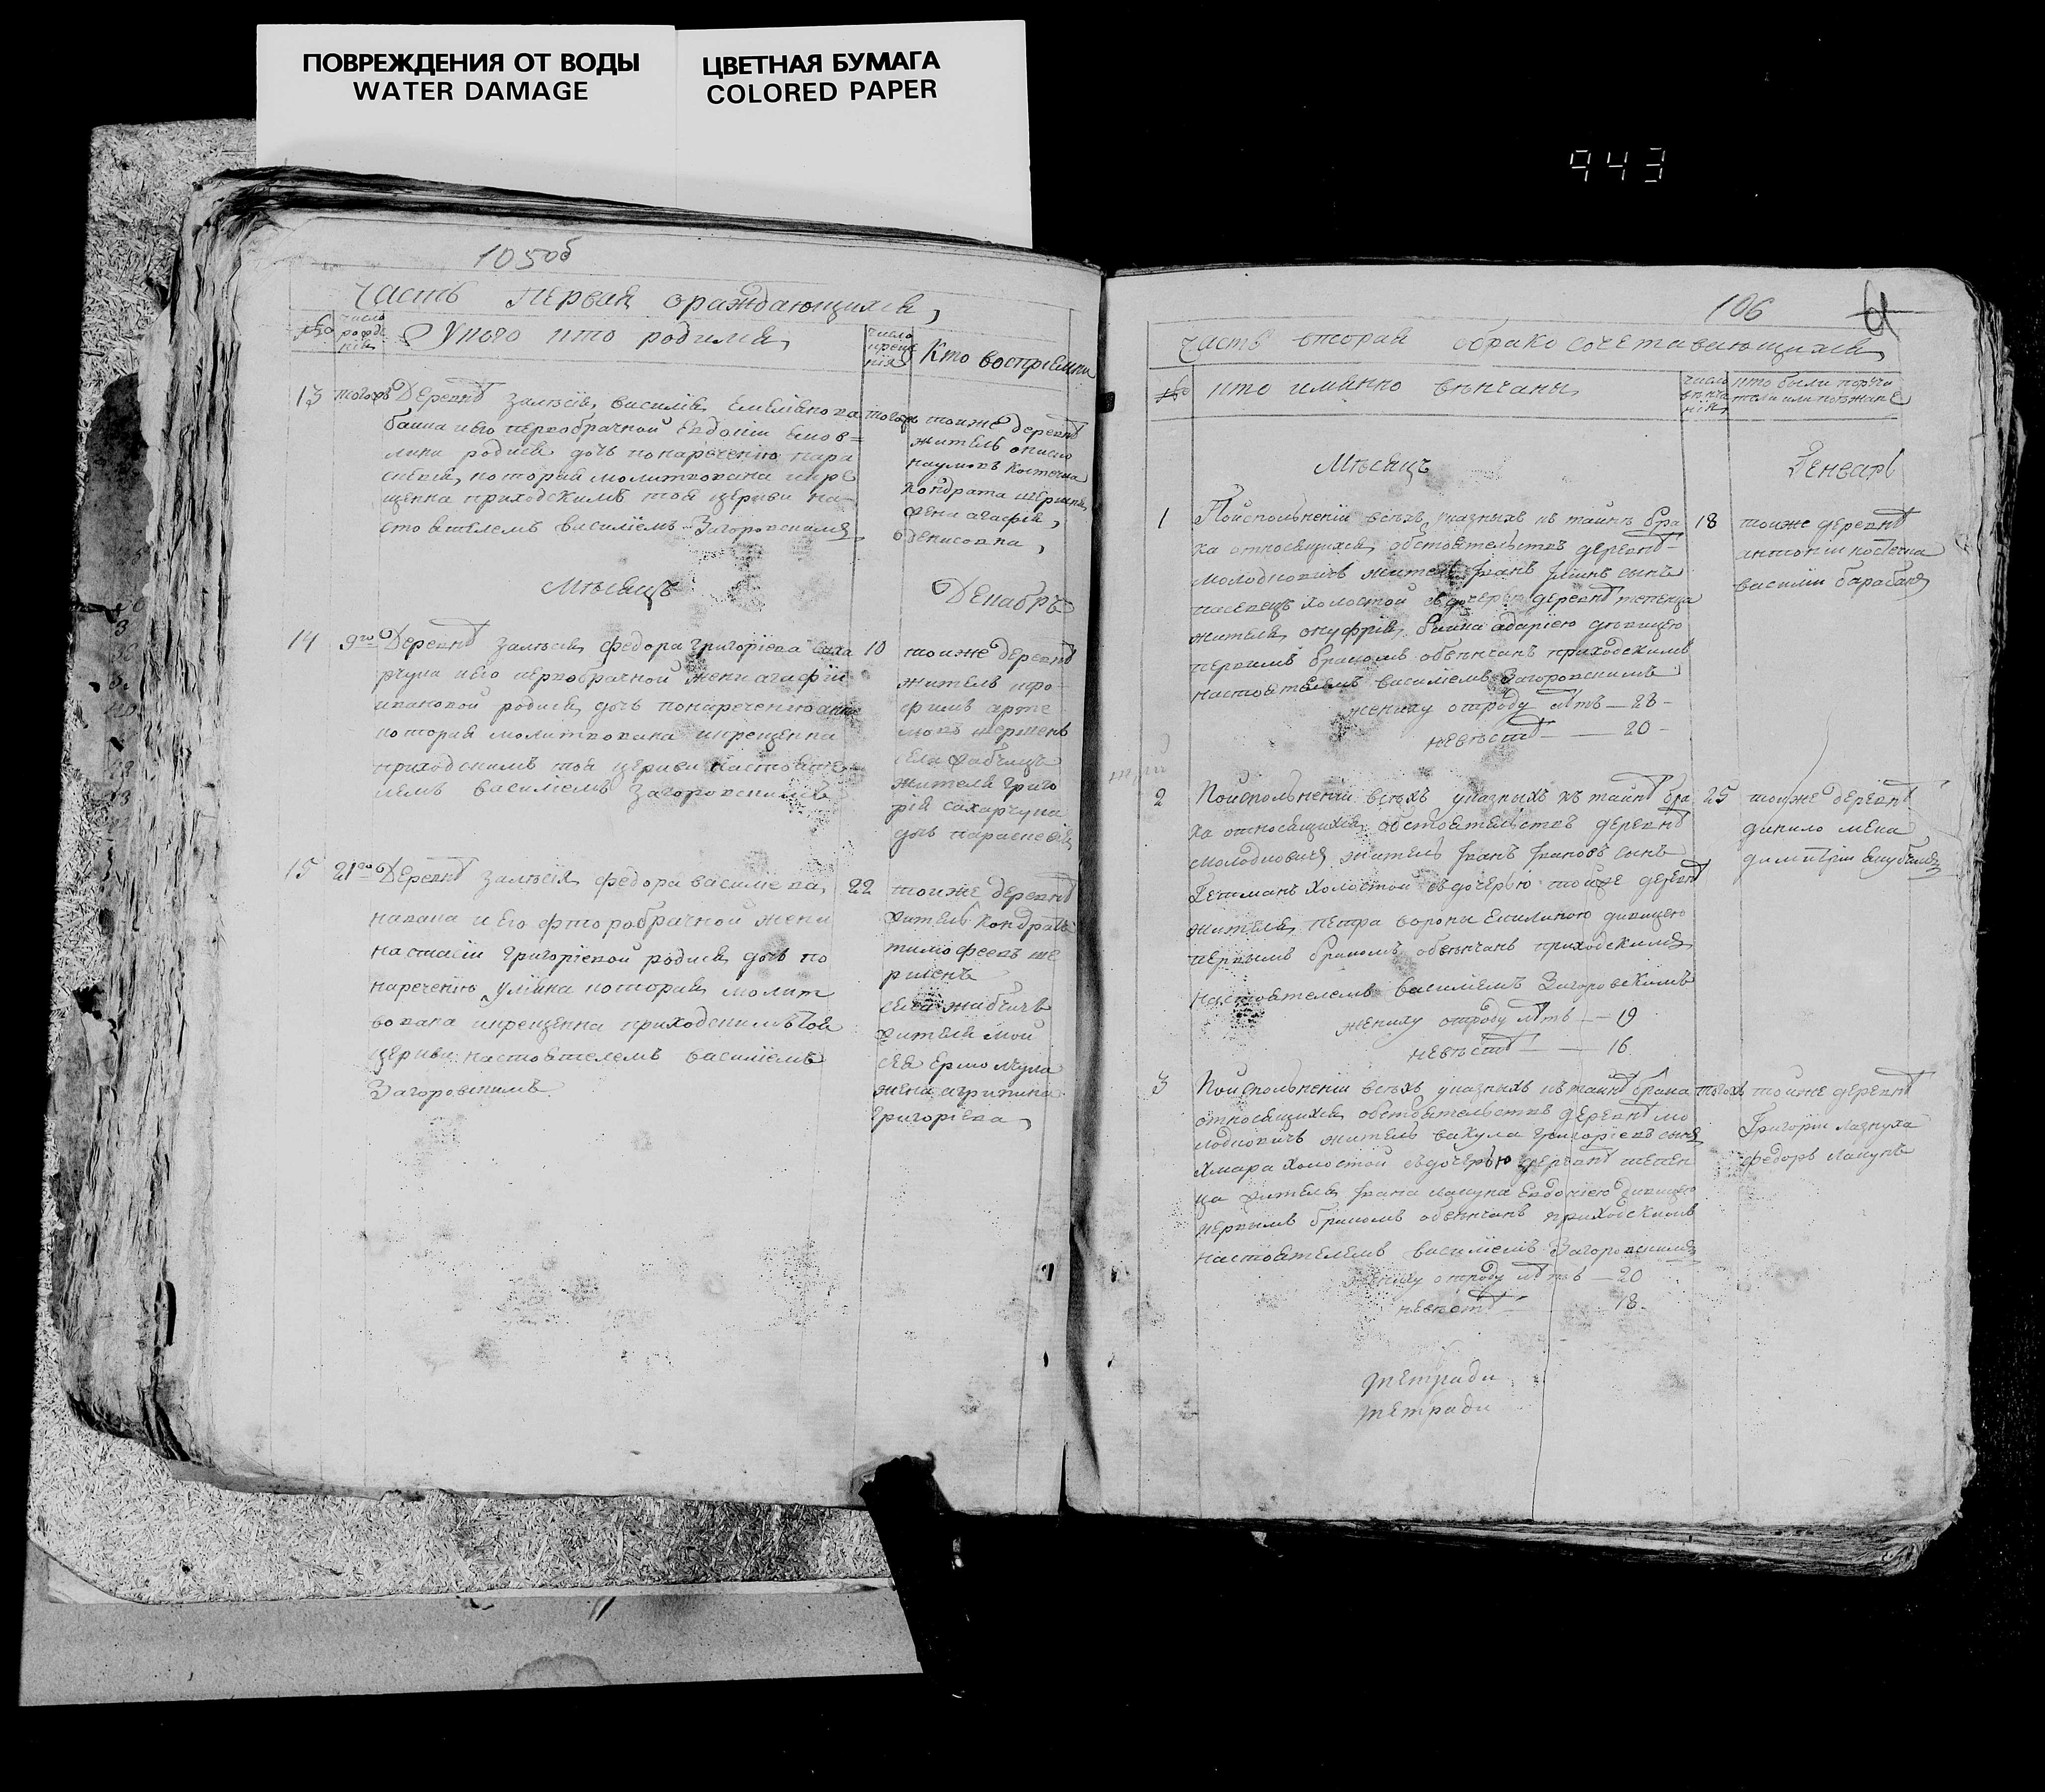 ПОВРЕЖДЕНИЯ ОТ ВОДЫ
WATER DAMAGE
ЦВЕТНАЯ БУМАГА
COLORED PAPER
943
105об
Часть первая ораждающихся,
№ число рожде нія
Укого кто родился
число креще нія
Кто воспріемники
13 тогожъ Деревнѣ залѣсія, василія Емеліянова
баина и его первобрачной Евдокіи
родися дочь понареченію пара
скевія, которая молитвована икре
щенна приходскимъ той церкви на
стоятелемъ василіемъ Загоровскимъ
тогожъ тоиже деревнѣ
житель
наумовъ
Кондрата
жена агафія,
денисовна,
Мѣсяцъ Декабрь
14 9го Деревнѣ залѣсія федора григоріева саха
рчука иего первобрачной жени агафіи
ивановой родися дочь понареченію анна
которая молитвована икрещенна
приходскимъ той церкви настояте
лемъ василіемъ Загоровскимъ
10 тоиже деревнѣ
житель тро
фимъ арте
мовъ
села
жителя григо
рія сахарчука
дочь параскевія
15 21го Деревнѣ залѣсія федора василіева
иего фторобрачной жени
настасіи григоріевой родися дочь по
нареченію уліяна которая молит
вована икрещенна приходскимъ той
церкви настоятелемъ василіемъ
Загоровскимъ
22 тоиже деревнѣ
житель Кондратъ
тимофеевъ ше
села жабчичъ
жителя мои
сея
жена агрипина
григоріева,
106
Часть вторая обрако сочетавающихся
№ кто имянно вѣнчаны
число вѣнча нія
кто были поручи тели или поѣжане
Мѣсяцъ Генваръ
1 Поисполненіи всѣхъ указныхъ къ тайнѣ бра
ка относящихся обстоятельствъ деревнѣ
молодковичъ житель Іванъ сынъ
холостой сдочерью деревнѣ тепенца
жителя онуфрія дѣвицею
первымъ бракомъ обвѣнчанъ приходскимъ
настоятелемъ василіемъ Загоровскимъ
жениху отроду лѣтъ — 23 -
невѣстѣ — 20 -
18 тоиже деревнѣ
антоніи
василіи барабанъ
2 Поисполненіи всѣхъ указныхъ къ тайнѣ бра
ка относящихся обстоятельствъ деревнѣ
молодковичъ житель Іванъ Івановъ сынъ
Гетманъ холостой сдочерью тойже деревнѣ
жителя петра вороны дивицею
первымъ бракомъ обвѣнчанъ приходскимъ
настоятелемъ василіемъ Загоровскимъ
жениху отроду лѣтъ — 19
невѣстѣ — 16
25 тоиже деревнѣ
данило
димитріи
3 Поисполненіи всѣхъ указныхъ къ тайнѣ брака
относящихся обстоятельствъ деревнѣ мо
лодковичъ житель вакула григоріевъ сынъ
хмара холостой сдочерью деревнѣ тепен
ца жителя Івана лакуна Евдокіею дивицею
первымъ бракомъ обвѣнчанъ приходскимъ
настоятелемъ василіемъ Загоровскимъ
жениху отроду лѣтъ — 20
невѣстѣ — 18.
тогожъ тойже деревнѣ
Григорій
федоръ лакунъ
тетради
тетради